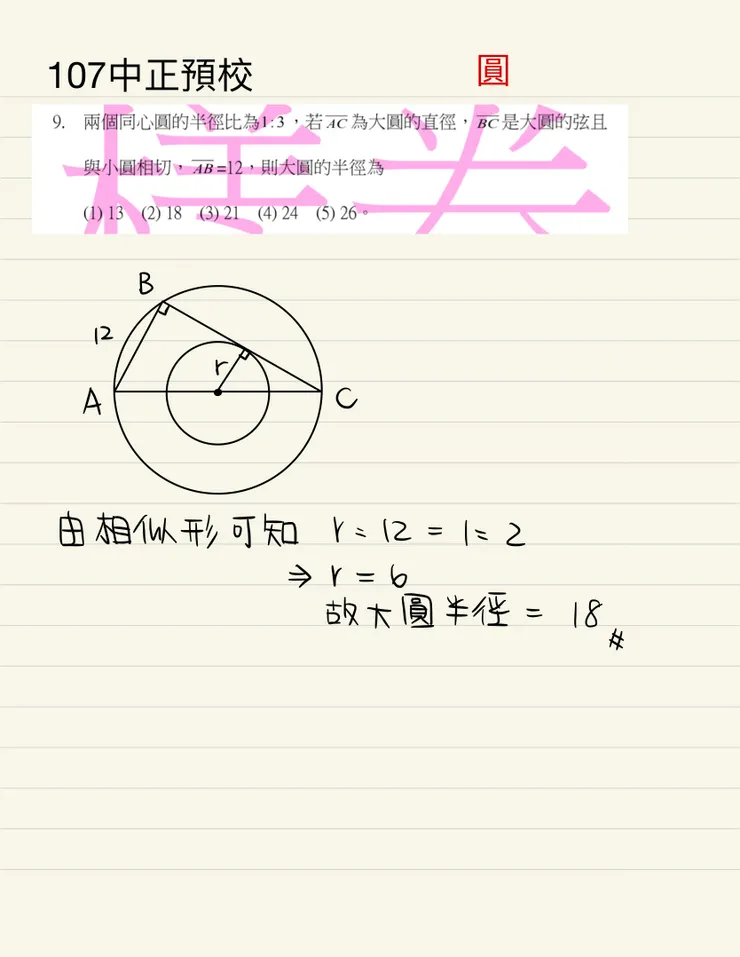 107中正預校
圓
9. 兩個同心圓的半徑比為1:3，若 AC 為大圓的直徑，BC 是大圓的弦且
與小圓相切，AB=12，則大圓的半徑為
(1) 13 (2) 18 (3) 21 (4) 24 (5) 26。
樣卷
B
12
r
A
C
由相似形可知 r:12=1:2
⇒ r=6
故大圓半徑=18#